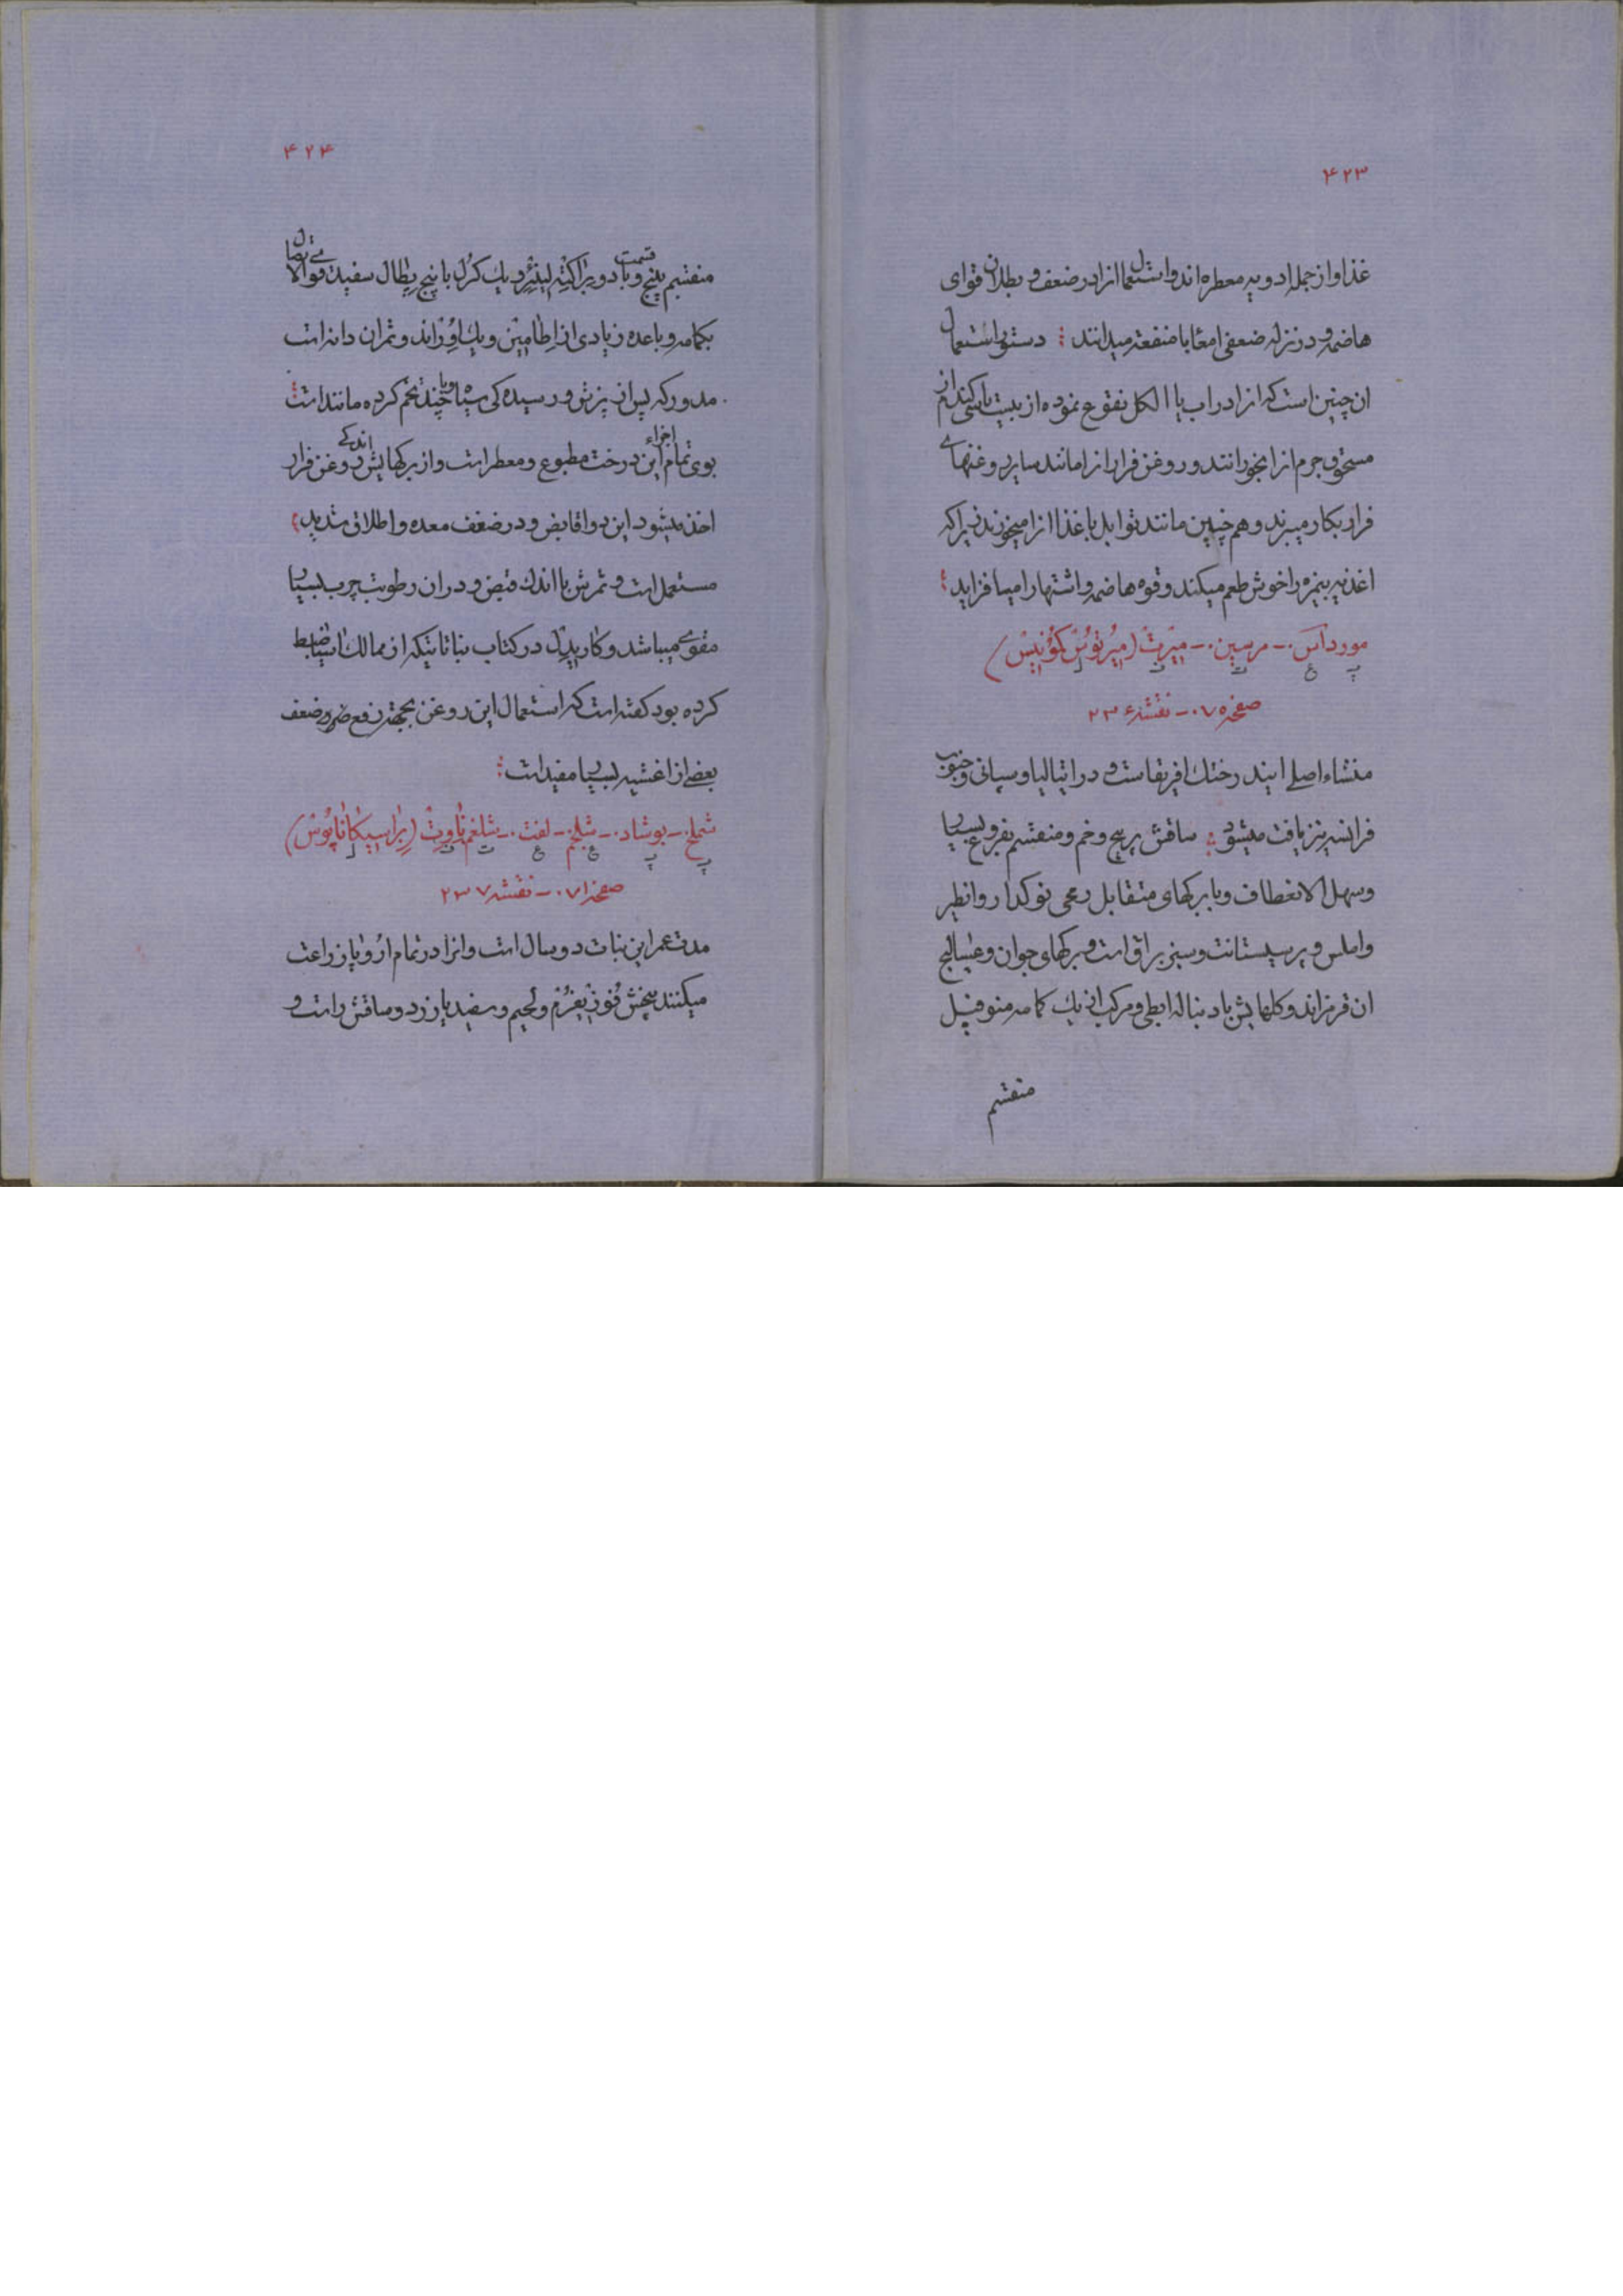 ۴۲۳
غذا و از جمله ادویه معطره اند و استعمال انرا در ضعف و بطلان قوای
هاضمه و در نزله ضعفی امعا با منفعت میدانند ؛ دستور استعمال
ان چنین است که انرا در اب یا الکل نقوع نموده از بیست یا سی کندم از
مسحوق جرم انرا بخورانند و روغن فرار انرا مانند سایر روغنهای
فرار بکار میبرند و هم چنین مانند توابل با غذا انرا میخورند زیرا که
اغذیه بیمزه را خوش طعم میکند و قوه هاضمه و اشتها را میافزاید ؛
مورداس ـ مرسین ـ میرت (میرتوس کمونیس)
پ ع ت ف ل
صفحه ۰۷ ـ نقشه ۲۳۶
منشاء اصلی ایندرختک افریقاست و در اتیالیا و سپانی و جنوب
فرانسه نیز یافت میشود ؛ ساقش پر پیچ و خم و منقسم بفروع بسیار
و سهل الانعطاف و با برکهای متقابل رمحی نوکدار و انظیر
و املس و پرسیستانت و سبز براق است و برکهای جوان و عسالیج
ان قرمزاند و کلهایش با دنباله ابطی و مرکب از یك کامه منوفیل
منقسم
۴۲۴
منقسم بپنج قسمت و با دو براکته لینئر و یك کرل با پنج پطال سفید قوالا متصل
بکامه و با عده زیادی از اطامین و یك اوراند و ثمران دانه است
مدور که پس از پزش و رسیده کی سیاه و با چند تخم کرده مانند است ؛
بوی تمام اجزاء این درخت مطبوع و معطر است و از برکهایش اندکی روغن فرار
اخذ میشود این دوا قابض و در ضعف معده و اطلاق شدید
مستعمل است و ثمرش با اندك قبض و در ان رطوبت چرب بسیار
مقوی میباشد و کاریدل در کتاب نباتاتیکه از ممالك اسیا ضبط
کرده بود کفته است که استعمال این روغن بجهة رفع ضرر و ضعف
بعضی از اغشیه بسیار مفید است ؛
شملخ ـ بوشاد ـ شلجم ـ لفت ـ شلغم ناوت (براسیکا ناپوس)
پ پ ع ع ت ف ل
صفحه ۰۷۱ ـ نقشه ۲۳۷
مدت عمر این نبات دو سال است و انرا در تمام اروپا زراعت
میکنند بیخش فوزیفرم و لحیم و سفید یا زرد و ساقش راست و